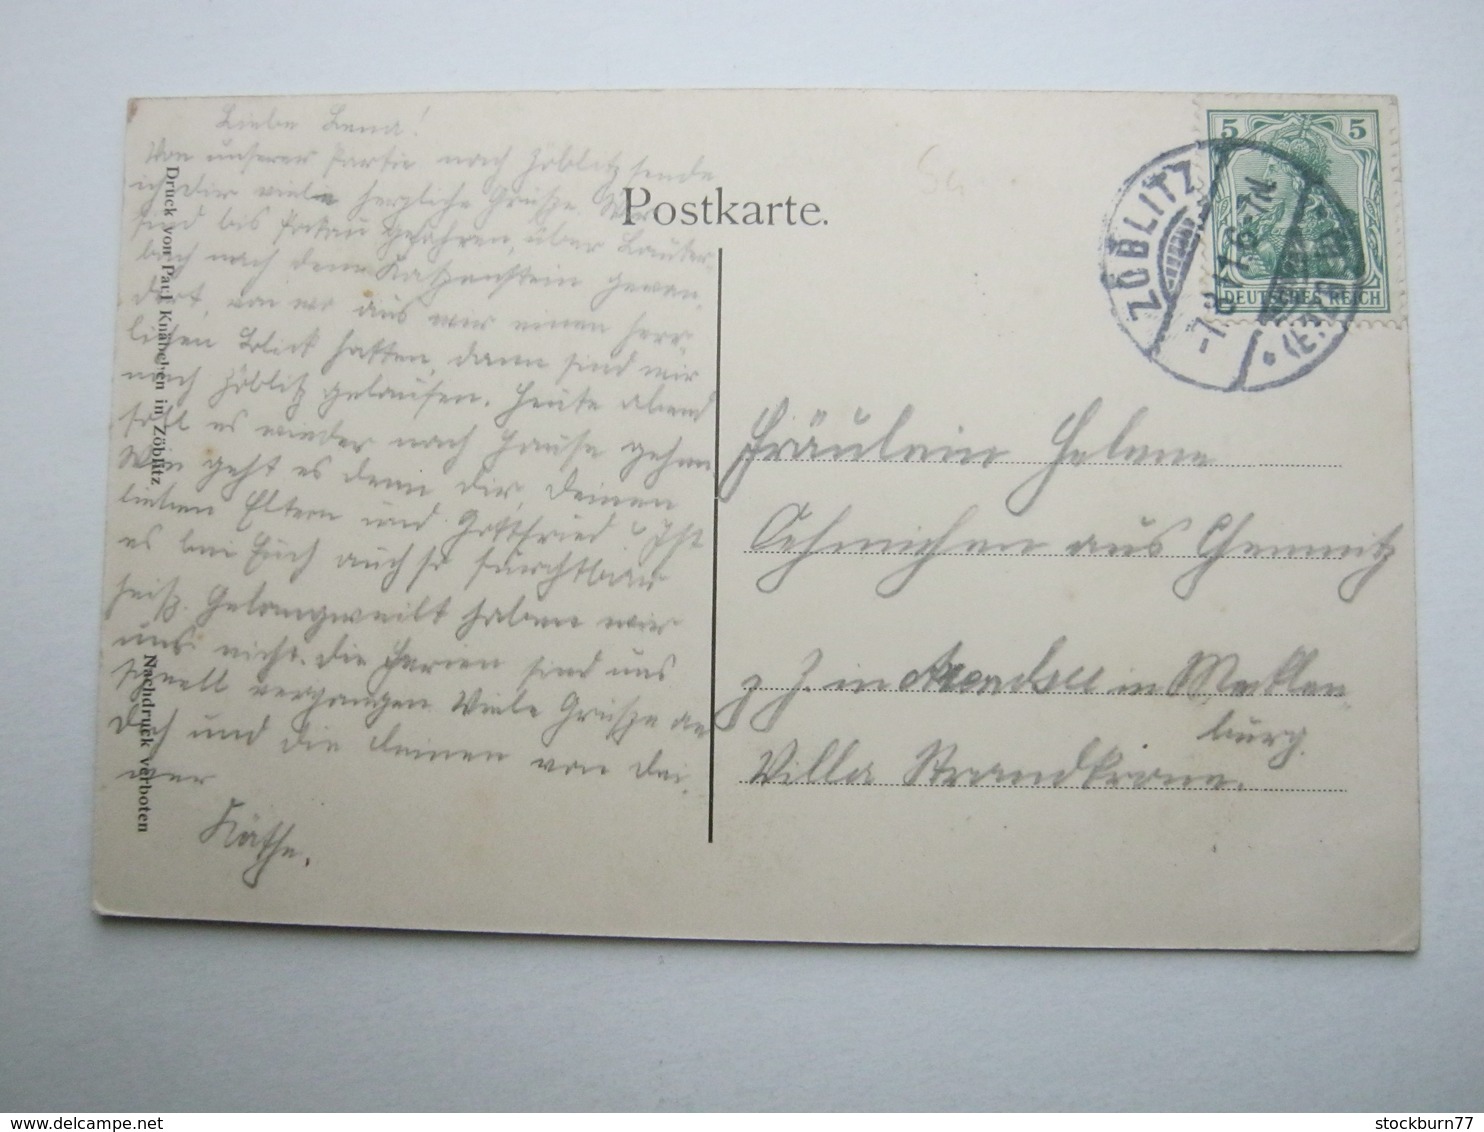 Liebe Lena!
Von unserer Partie nach Zöblitz sende
ich Dir viele herzliche Grüße. Wir
sind bis Pockau gefahren, über Lauter-
bach nach dem Katzenstein gewan-
dert, von wo aus wir einen herr-
lichen Blick hatten, dann sind wir
nach Zöblitz gelaufen. Heute abend
soll es wieder nach Hause gehen
Wie geht es denn dir, deinen
lieben Eltern und Gottfried? Ist
es bei Euch auch so furchtbar
heiß. Gelangweilt haben wir
uns nicht. die Ferien sind uns
schnell vergangen. Viele Grüße an
Dich und die deinen von dei-
ner
Käthe.
Druck von Paul Knäbchen in Zöblitz
Nachdruck verboten
Postkarte.
5 5
DEUTSCHES REICH
ZÖBLITZ
Fräulein Helene
Oehmichen aus Chemnitz
z. Z. in Arendsee in Mecklen
burg.
Villa Strandkrone.
stockburn77